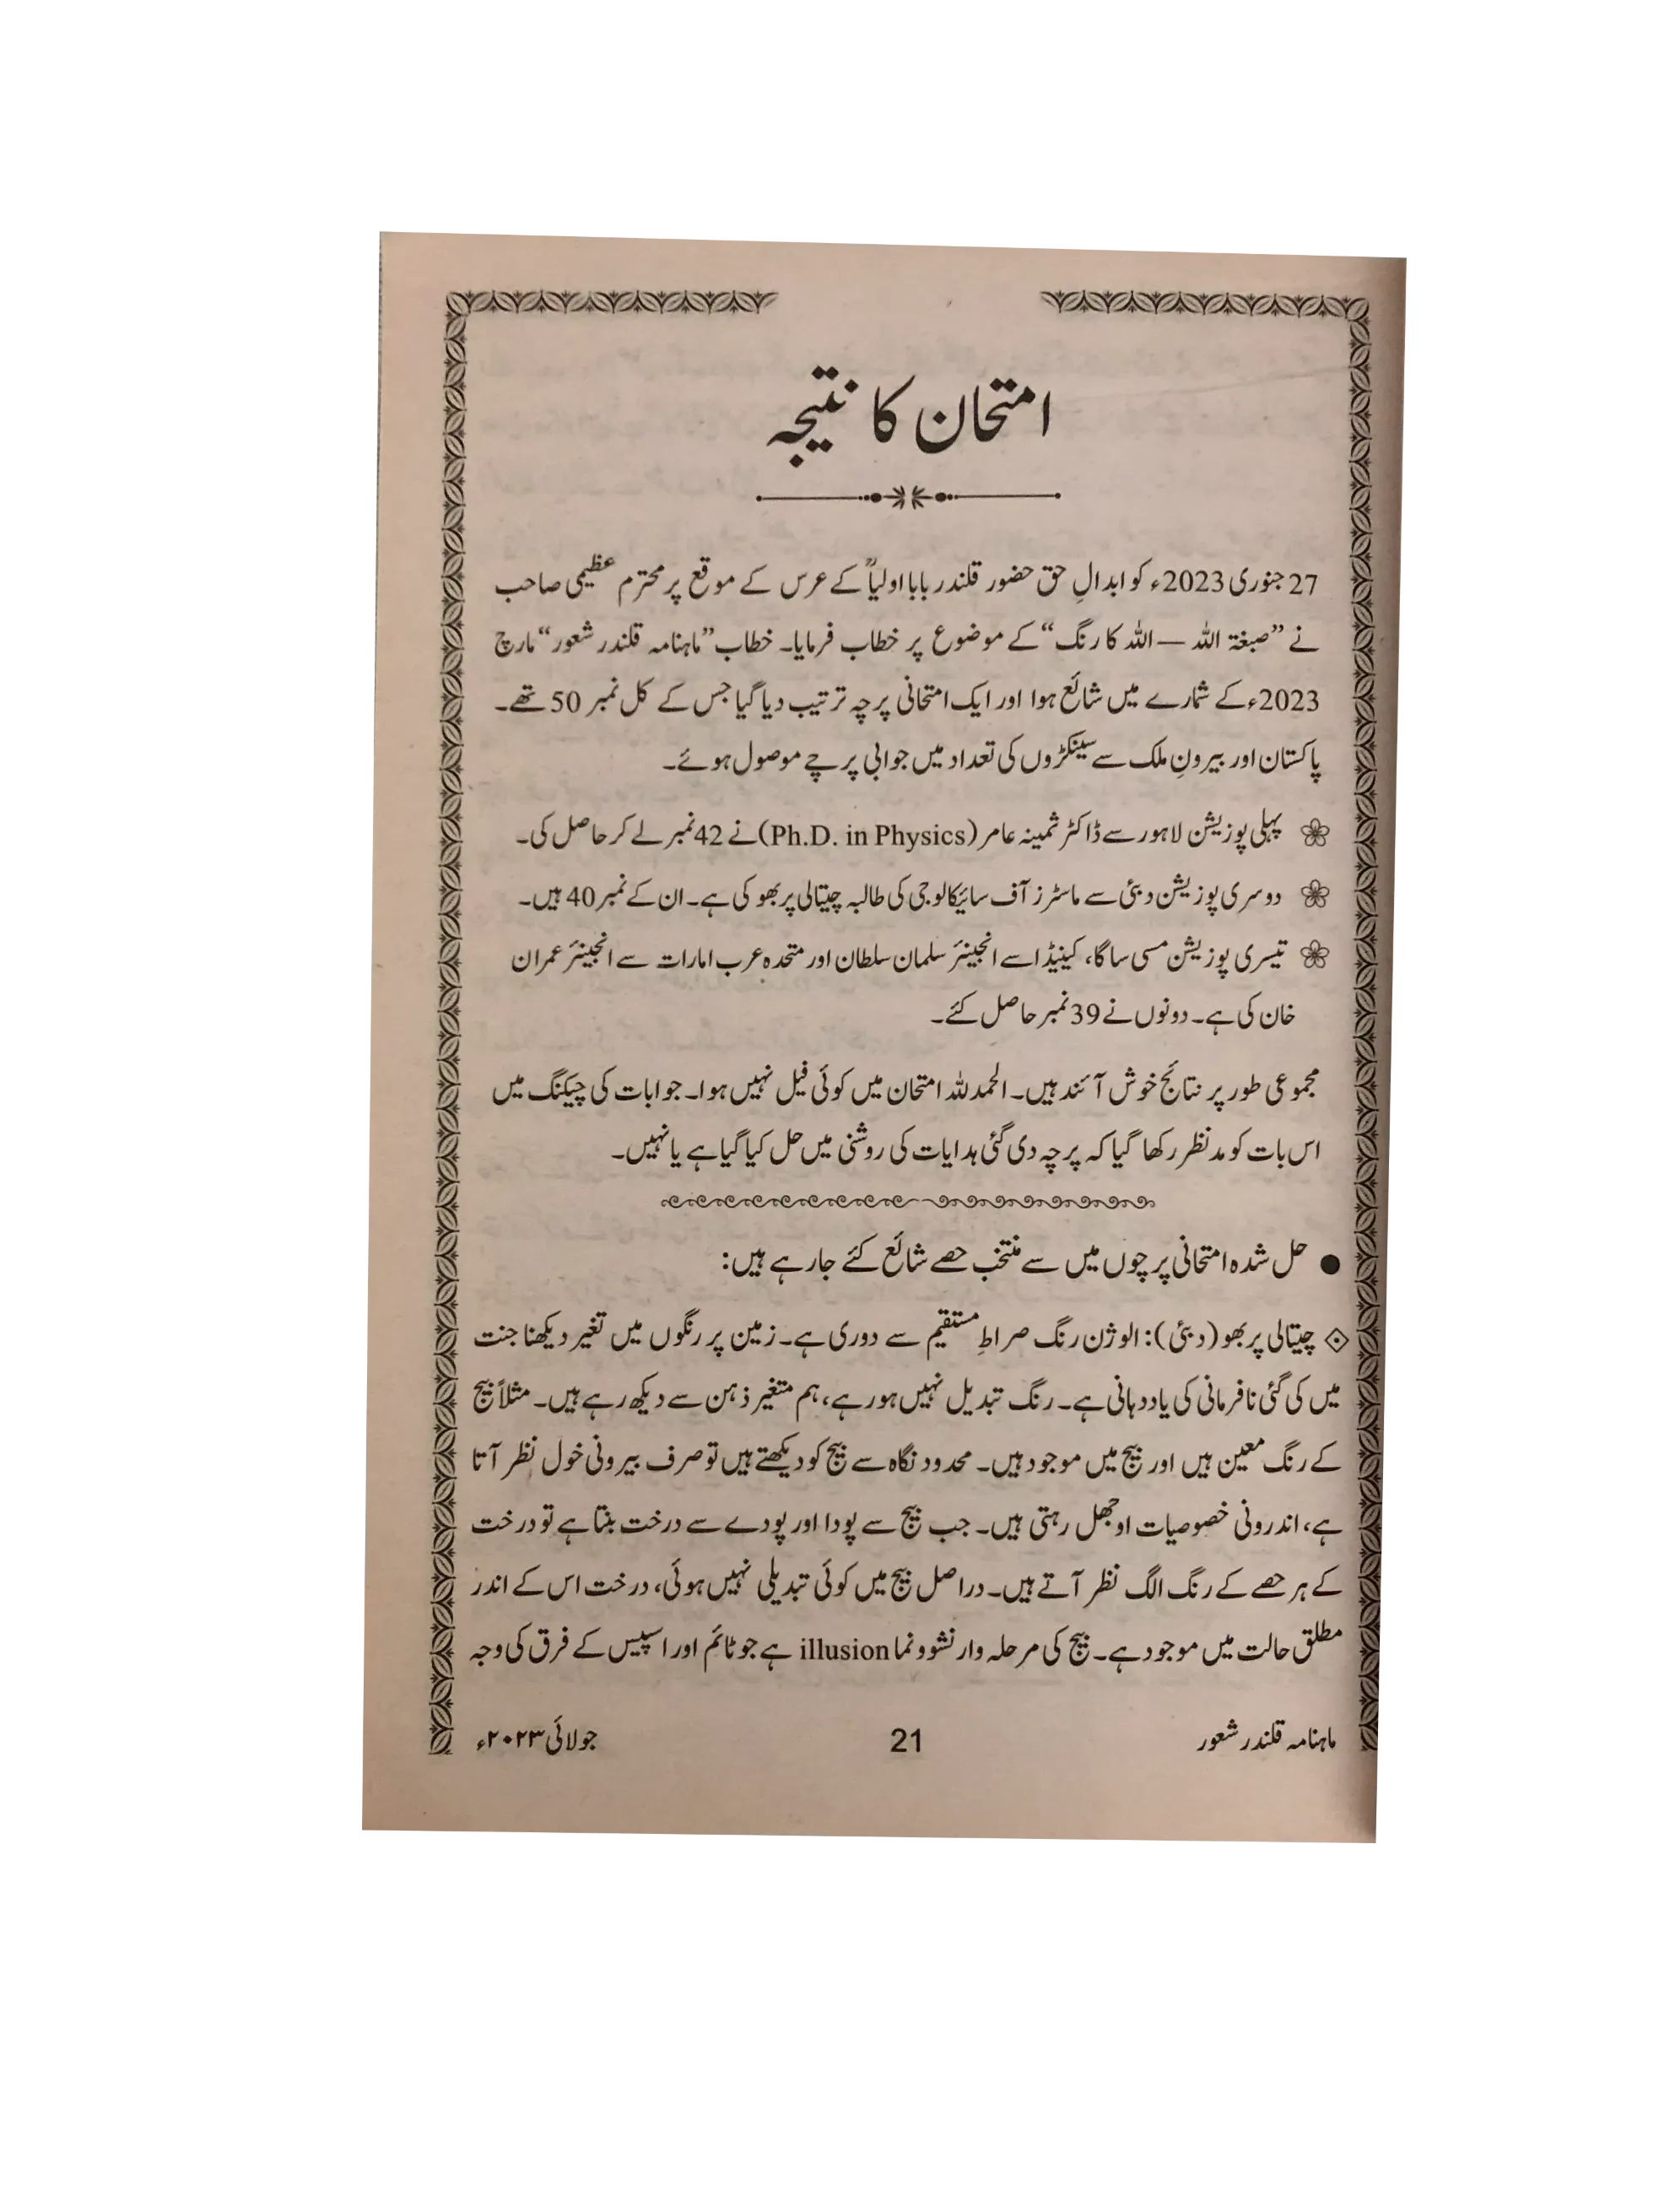 امتحان کا نتیجہ
27 جنوری 2023ء کو ابدالِ حق حضور قلندر بابا اولیاؒ کے عرس کے موقع پر محترم عظیمی صاحب
نے ”صبغۃ اللہ — اللہ کا رنگ“ کے موضوع پر خطاب فرمایا۔ خطاب ”ماہنامہ قلندر شعور“ مارچ
2023ء کے شمارے میں شائع ہوا اور ایک امتحانی پرچہ ترتیب دیا گیا جس کے کل نمبر 50 تھے۔
پاکستان اور بیرونِ ملک سے سینکڑوں کی تعداد میں جوابی پرچے موصول ہوئے۔
پہلی پوزیشن لاہور سے ڈاکٹر ثمینہ عامر (Ph.D. in Physics) نے 42 نمبر لے کر حاصل کی۔
دوسری پوزیشن دبئی سے ماسٹرز آف سائیکالوجی کی طالبہ چیتالی پربھو کی ہے۔ ان کے نمبر 40 ہیں۔
تیسری پوزیشن مسی ساگا، کینیڈا سے انجینئر سلمان سلطان اور متحدہ عرب امارات سے انجینئر عمران
خان کی ہے۔ دونوں نے 39 نمبر حاصل کئے۔
مجموعی طور پر نتائج خوش آئند ہیں۔ الحمدللہ امتحان میں کوئی فیل نہیں ہوا۔ جوابات کی چیکنگ میں
اس بات کو مدنظر رکھا گیا کہ پرچہ دی گئی ہدایات کی روشنی میں حل کیا گیا ہے یا نہیں۔
● حل شدہ امتحانی پرچوں میں سے منتخب حصے شائع کئے جارہے ہیں:
چیتالی پربھو (دبئی): الوژن رنگ صراطِ مستقیم سے دوری ہے۔ زمین پر رنگوں میں تغیر دیکھنا جنت
میں کی گئی نافرمانی کی یاددہانی ہے۔ رنگ تبدیل نہیں ہورہے، ہم متغیر ذہن سے دیکھ رہے ہیں۔ مثلاً بیج
کے رنگ معین ہیں اور بیج میں موجود ہیں۔ محدود نگاہ سے بیج کو دیکھتے ہیں تو صرف بیرونی خول نظر آتا
ہے، اندرونی خصوصیات اوجھل رہتی ہیں۔ جب بیج سے پودا اور پودے سے درخت بنتا ہے تو درخت
کے ہر حصے کے رنگ الگ نظر آتے ہیں۔ دراصل بیج میں کوئی تبدیلی نہیں ہوئی، درخت اس کے اندر
مطلق حالت میں موجود ہے۔ بیج کی مرحلہ وار نشوونما illusion ہے جو ٹائم اور اسپیس کے فرق کی وجہ
ماہنامہ قلندر شعور 21 جولائی ۲۰۲۳ء